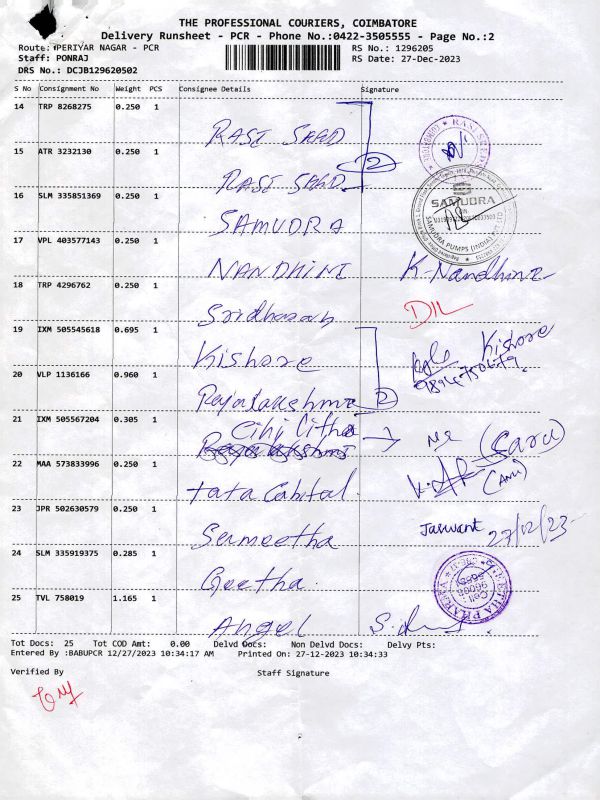 THE PROFESSIONAL COURIERS, COIMBATORE
Delivery Runsheet - PCR - Phone No.:0422-3505555 - Page No.:2
Route: PERIYAR NAGAR - PCR RS No.: 1296205
Staff: PONRAJ RS Date: 27-Dec-2023
DRS No.: DCJB129620502
S No Consignment No Weight PCS Consignee Details Signature
14 TRP 8268275 0.250 1
RASI SEED
15 ATR 3232130 0.250 1
2
RASI SEED
16 SLM 335851369 0.250 1
SAMUDRA
SAMUDRA
SAMUDRA PUMPS (INDIA)
17 VPL 403577143 0.250 1
NANDHINI K-Nandhini
18 TRP 4296762 0.250 1
Sridharan DIL
19 IXM 505545618 0.695 1
Kishore Kishore
20 VLP 1136166 0.960 1
Rajalakshmi 2
21 IXM 505567204 0.305 1
22 MAA 573833996 0.250 1
tata Cabital
23 JPR 502630579 0.250 1
Jaswant 27/12/23
Sumeetha
24 SLM 335919375 0.285 1
Geetha
25 TVL 758019 1.165 1
Angel
Tot Docs: 25 Tot COD Amt: 0.00 Delvd Docs: Non Delvd Docs: Delvy Pts:
Entered By :BABUPCR 12/27/2023 10:34:17 AM Printed On: 27-12-2023 10:34:33
Verified By Staff Signature